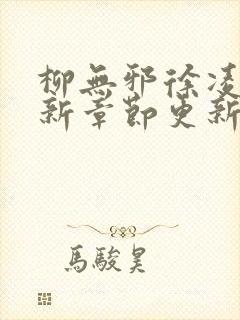 柳無邪徐凌
新章節更新
馬駿昊